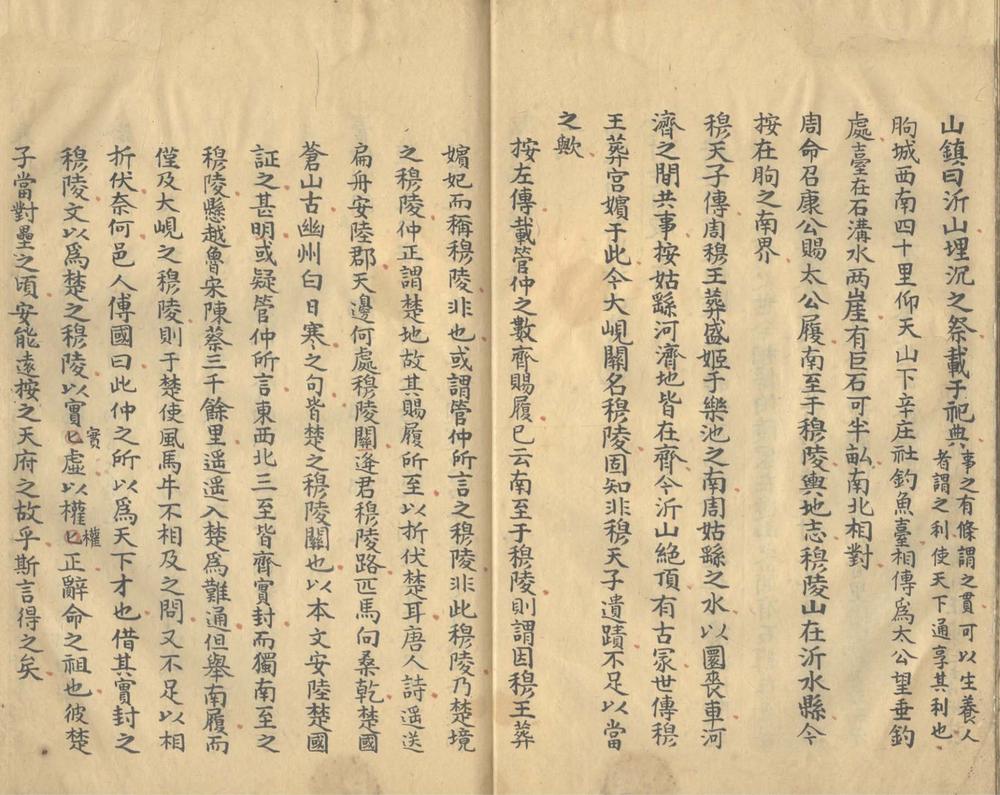 山鎮曰沂山埋沉之祭載于祀典事之有條謂之貫可以生養人者謂之利使天下通享其利也
朐城西南四十里仰天山下辛庄社釣魚臺相傳爲太公望垂釣
處臺在石溝水两崖有巨石可半畆南北相對
周命召康公賜太公履南至于穆陵輿地志穆陵山在沂水縣今
按在朐之南界
穆天子傳周穆王葬盛姬于樂池之南周姑繇之水以圜喪車河
濟之間共事按姑繇河濟地皆在齊今沂山絶頂有古冡世傳穆
王葬宮嬪于此今大峴關名穆陵固知非穆天子遺蹟不足以當
之歟
按左傳載管仲之數齊賜履已云南至于穆陵則謂因穆王葬
嬪妃而稱穆陵非也或謂管仲所言之穆陵非此穆陵乃楚境
之穆陵仲正謂楚地故其賜履所至以折伏楚耳唐人詩遥送
扁舟安陸郡天邊何處穆陵關逄君穆陵路匹馬向桑乾楚國
蒼山古幽州白日寒之句皆楚之穆陵關也以本文安陸楚國
証之甚明或疑管仲所言東西北三至皆齊實封而獨南至之
穆陵懸越魯宋陳蔡三千餘里遥遥入楚爲難通但舉南履而
僅及大峴之穆陵則于楚使風馬牛不相及之問又不足以相
折伏奈何邑人傅國曰此仲之所以爲天下才也借其實封之
穆陵文以爲楚之穆陵以實匕實虛以權匕權正辭命之祖也彼楚
子當對壘之頃安能遠按之天府之故乎斯言得之矣